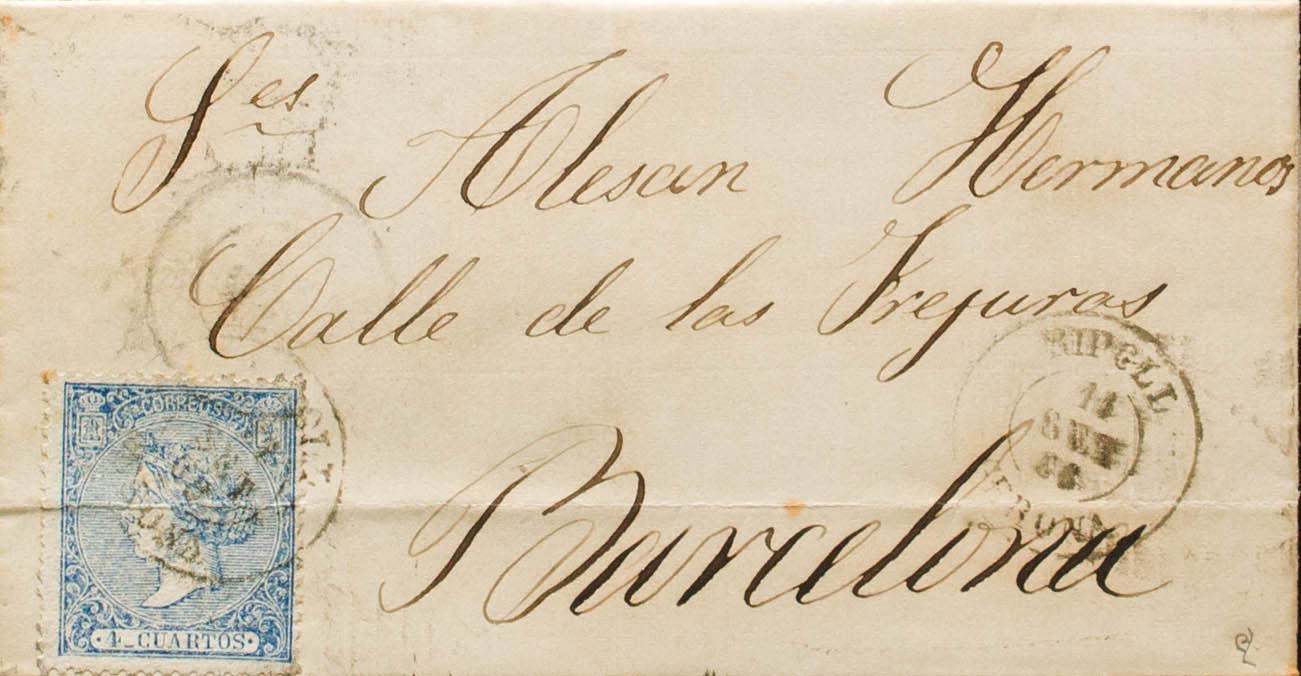 Sres Alesan Hermanos
Calle de las Frejuras
Barcelona
RIPOLL
14
SET
66
GERONA
CORREOS
4_CUARTOS